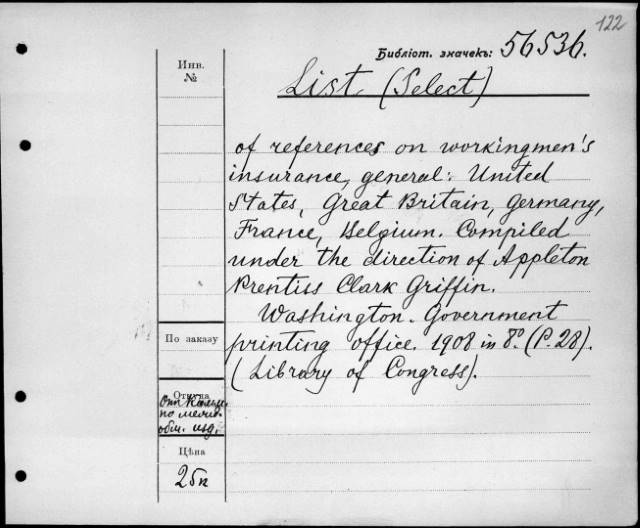 122
Библіот. значекъ: 56536.
Инв.
№
List (Select)
of references on workingmen's
insurance, general: United
States, Great Britain, Germany,
France, Belgium. Compiled
under the direction of Appleton
Prentiss Clark Griffin.
Washington. Government
printing office. 1908 in 8º. (P. 28).
(Library of Congress).
По заказу
Откуда
по
обм. изд.
Цѣна
25к